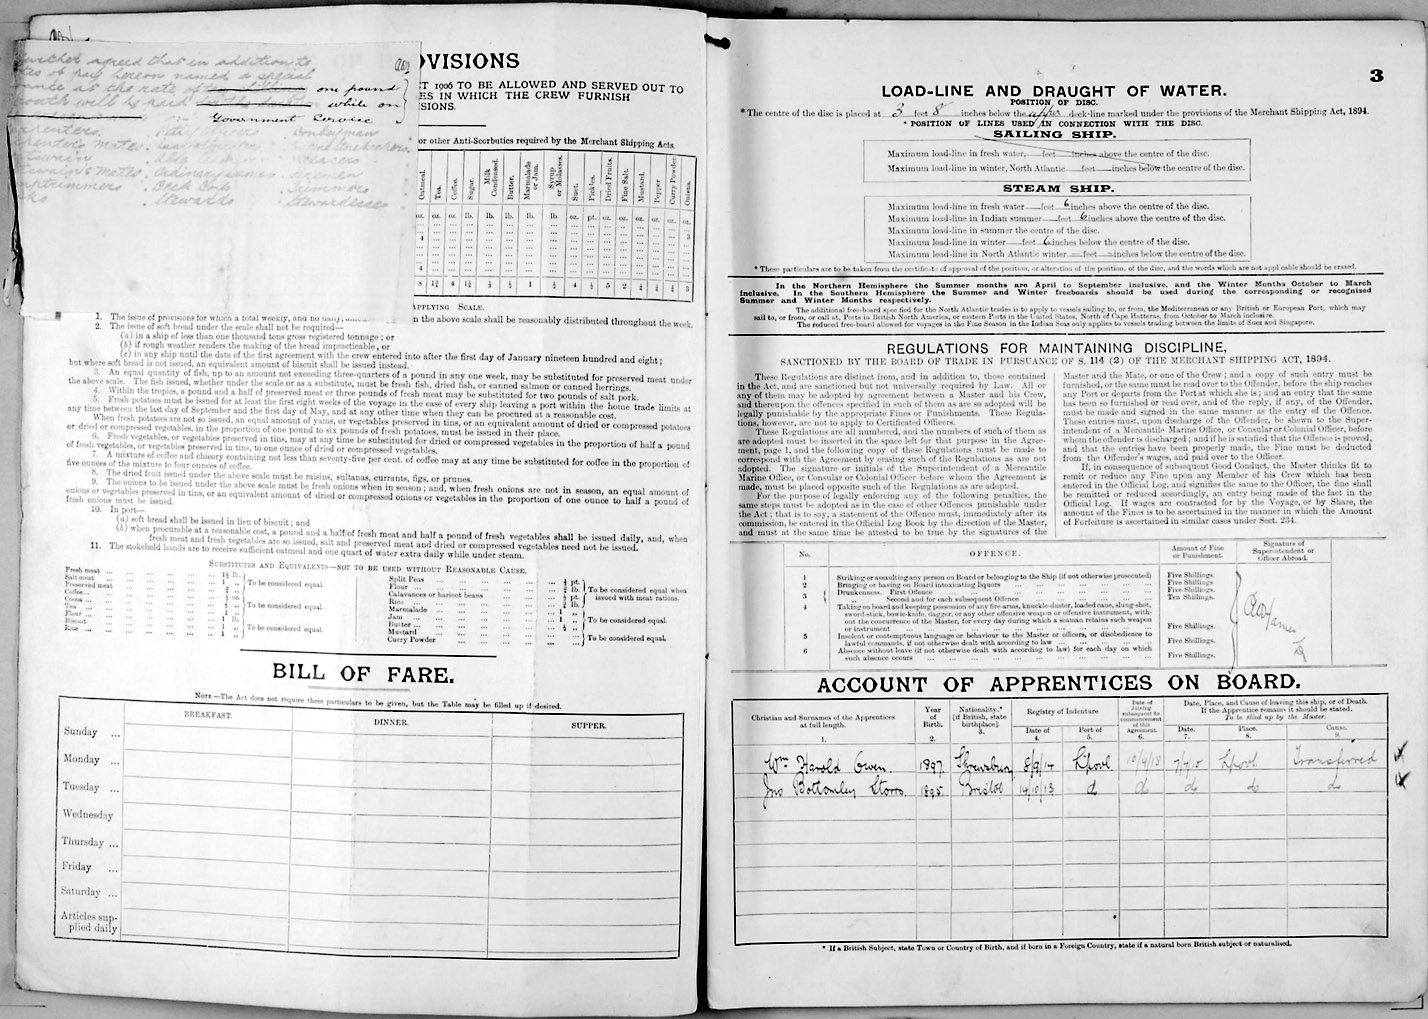 agreed that in addition to
of pay hereon named a special
at the rate of one pound
month will be paid while on
Government Service
OVISIONS
1906 TO BE ALLOWED AND SERVED OUT TO
IN WHICH THE CREW FURNISH
or other Anti-Scorbutics required by the Merchant Shipping Acts.
Oatmeal. Tea. Coffee. Sugar. Milk Condensed. Butter. Marmalade or Jam. Syrup or Molasses. Suet. Pickles. Dried Fruits. Fine Salt. Mustard. Pepper Curry Powder. Onions.
oz. oz. oz. lb. lb. lb. lb. lb. oz. pt. oz. oz. oz. oz. oz. oz.
APPLYING SCALE.
1. The issue of provisions for which a total weekly, and no daily, in the above scale shall be reasonably distributed throughout the week.
2. The issue of soft bread under the scale shall not be required—
(a) in a ship of less than one thousand tons gross registered tonnage; or
(b) if rough weather renders the making of the bread impracticable, or
(c) in any ship until the date of the first agreement with the crew entered into after the first day of January nineteen hundred and eight;
but where soft bread is not issued, an equivalent amount of biscuit shall be issued instead.
3. An equal quantity of fish, up to an amount not exceeding three-quarters of a pound in any one week, may be substituted for preserved meat under
the above scale. The fish issued, whether under the scale or as a substitute, must be fresh fish, dried fish, or canned salmon or canned herrings.
4. Within the tropics, a pound and a half of preserved meat or three pounds of fresh meat may be substituted for two pounds of salt pork.
5. Fresh potatoes must be issued for at least the first eight weeks of the voyage in the case of every ship leaving a port within the home trade limits at
any time between the last day of September and the first day of May, and at any other time when they can be procured at a reasonable cost.
When fresh potatoes are not so issued, an equal amount of yams, or vegetables preserved in tins, or an equivalent amount of dried or compressed potatoes
or dried or compressed vegetables, in the proportion of one pound to six pounds of fresh potatoes, must be issued in their place.
6. Fresh vegetables, or vegetables preserved in tins, may at any time be substituted for dried or compressed vegetables in the proportion of half a pound
of fresh vegetables, or vegetables preserved in tins, to one ounce of dried or compressed vegetables.
7. A mixture of coffee and chicory containing not less than seventy-five per cent. of coffee may at any time be substituted for coffee in the proportion of
five ounces of the mixture to four ounces of coffee.
8. The dried fruit issued under the above scale must be raisins, sultanas, currants, figs, or prunes.
9. The onions to be issued under the above scale must be fresh onions when in season; and, when fresh onions are not in season, an equal amount of
onions or vegetables preserved in tins, or an equivalent amount of dried or compressed onions or vegetables in the proportion of one ounce to half a pound of
fresh onions must be issued.
10. In port—
(a) soft bread shall be issued in lieu of biscuit; and
(b) when procurable at a reasonable cost, a pound and a half of fresh meat and half a pound of fresh vegetables shall be issued daily, and, when
fresh meat and fresh vegetables are so issued, salt and preserved meat and dried or compressed vegetables need not be issued.
11. The stokehold hands are to receive sufficient oatmeal and one quart of water extra daily while under steam.
SUBSTITUTES AND EQUIVALENTS—NOT TO BE USED WITHOUT REASONABLE CAUSE.
Fresh meat
Salt meat
Preserved meat
To be considered equal.
Coffee
Cocoa
Tea
To be considered equal.
Flour
Biscuit
Rice
To be considered equal.
Split Peas
Flour
Calavances or haricot beans
Rice
To be considered equal when issued with meat rations.
Marmalade
Jam
Butter
To be considered equal.
Mustard
Curry Powder
To be considered equal.
BILL OF FARE.
NOTE—The Act does not require these particulars to be given, but the Table may be filled up if desired.
BREAKFAST. DINNER. SUPPER.
Sunday ...
Monday ...
Tuesday ...
Wednesday
Thursday ...
Friday ...
Saturday ...
Articles sup-
plied daily
3
LOAD-LINE AND DRAUGHT OF WATER.
POSITION OF DISC.
* The centre of the disc is placed at 3 feet 8 inches below the upper deck-line marked under the provisions of the Merchant Shipping Act, 1894.
* POSITION OF LINES USED IN CONNECTION WITH THE DISC.
SAILING SHIP.
Maximum load-line in fresh water, feet inches above the centre of the disc.
Maximum load-line in winter, North Atlantic feet inches below the centre of the disc.
STEAM SHIP.
Maximum load-line in fresh water feet 6 inches above the centre of the disc.
Maximum load-line in Indian summer feet 6 inches above the centre of the disc.
Maximum load-line in summer the centre of the disc.
Maximum load-line in winter feet 6 inches below the centre of the disc.
Maximum load-line in North Atlantic winter feet inches below the centre of the disc.
* These particulars are to be taken from the certificate of approval of the position, or alteration of the position, of the disc, and the words which are not applicable should be erased.
In the Northern Hemisphere the Summer months are April to September inclusive, and the Winter Months October to March
inclusive. In the Southern Hemisphere the Summer and Winter freeboards should be used during the corresponding or recognised
Summer and Winter Months respectively.
The additional free-board specified for the North Atlantic trades is to apply to vessels sailing to, or from, the Mediterranean or any British or European Port, which may
sail to, or from, or call at, Ports in British North America, or eastern Ports in the United States, North of Cape Hatteras, from October to March inclusive.
The reduced free-board allowed for voyages in the Fine Season in the Indian Seas only applies to vessels trading between the limits of Suez and Singapore.
REGULATIONS FOR MAINTAINING DISCIPLINE,
SANCTIONED BY THE BOARD OF TRADE IN PURSUANCE OF S. 114 (2) OF THE MERCHANT SHIPPING ACT, 1894.
These Regulations are distinct from, and in addition to, those contained
in the Act, and are sanctioned but not universally required by Law. All or
any of them may be adopted by agreement between a Master and his Crew,
and thereupon the offences specified in such of them as are so adopted will be
legally punishable by the appropriate Fines or Punishments. These Regula-
tions, however, are not to apply to Certificated Officers.
These Regulations are all numbered, and the numbers of such of them as
are adopted must be inserted in the space left for that purpose in the Agree-
ment, page 1, and the following copy of these Regulations must be made to
correspond with the Agreement by erasing such of the Regulations as are not
adopted. The signature or initials of the Superintendent of a Mercantile
Marine Office, or Consular or Colonial Officer before whom the Agreement is
made, must be placed opposite such of the Regulations as are adopted.
For the purpose of legally enforcing any of the following penalties, the
same steps must be adopted as in the case of other Offences punishable under
the Act; that is to say, a statement of the Offence must, immediately after its
commission, be entered in the Official Log Book by the direction of the Master,
and must at the same time be attested to be true by the signatures of the
Master and the Mate, or one of the Crew; and a copy of such entry must be
furnished, or the same must be read over to the Offender, before the ship reaches
any Port or departs from the Port at which she is; and an entry that the same
has been so furnished or read over, and of the reply, if any, of the Offender,
must be made and signed in the same manner as the entry of the Offence.
These entries must, upon discharge of the Offender, be shewn to the Super-
intendent of a Mercantile Marine Office, or Consular or Colonial Officer, before
whom the offender is discharged; and if he is satisfied that the Offence is proved,
and that the entries have been properly made, the Fine must be deducted
from the Offender's wages, and paid over to the Officer.
If, in consequence of subsequent Good Conduct, the Master thinks fit to
remit or reduce any Fine upon any Member of his Crew which has been
entered in the Official Log, and signifies the same to the Officer, the fine shall
be remitted or reduced accordingly, an entry being made of the fact in the
Official Log. If wages are contracted for by the Voyage, or by Share, the
amount of the Fines is to be ascertained in the manner in which the Amount
of Forfeiture is ascertained in similar cases under Sect. 234.
No. OFFENCE. Amount of Fine or Punishment. Signature of Superintendent or Officer Abroad.
1 Striking or assaulting any person on Board or belonging to the Ship (if not otherwise prosecuted) Five Shillings.
2 Bringing or having on Board intoxicating liquors Five Shillings.
3 Drunkenness. First Offence Five Shillings.
Second and for each subsequent Offence Ten Shillings.
4 Taking on board and keeping possession of any fire-arms, knuckle-duster, loaded cane, slung-shot,
sword-stick, bowie-knife, dagger, or any other offensive weapon or offensive instrument, with-
out the concurrence of the Master, for every day during which a seaman retains such weapon
or instrument Five Shillings.
5 Insolent or contemptuous language or behaviour to the Master or officers, or disobedience to
lawful commands, if not otherwise dealt with according to law Five Shillings.
6 Absence without leave (if not otherwise dealt with according to law) for each day on which
such absence occurs Five Shillings.
ACCOUNT OF APPRENTICES ON BOARD.
Christian and Surnames of the Apprentices at full length. 1.
Year of Birth. 2.
Nationality.* [If British, state birthplace]. 3.
Registry of Indenture
Date of 4. Port of 5.
Date of Joining subsequent to commencement of this Agreement. 6.
Date, Place, and Cause of leaving this ship, or of Death.
If the Apprentice remains it should be stated.
To be filled up by the Master.
Date. 7. Place. 8. Cause. 9.
Wm Harold Owen 1897 Shrewsbury 8/9/14 Lpool 7/7/15 Lpool Transferred
Jno Bottomley Storrs 1895 Bristol 14/10/13 do do do do do
* If a British Subject, state Town or Country of Birth, and if born in a Foreign Country, state if a natural born British subject or naturalised.